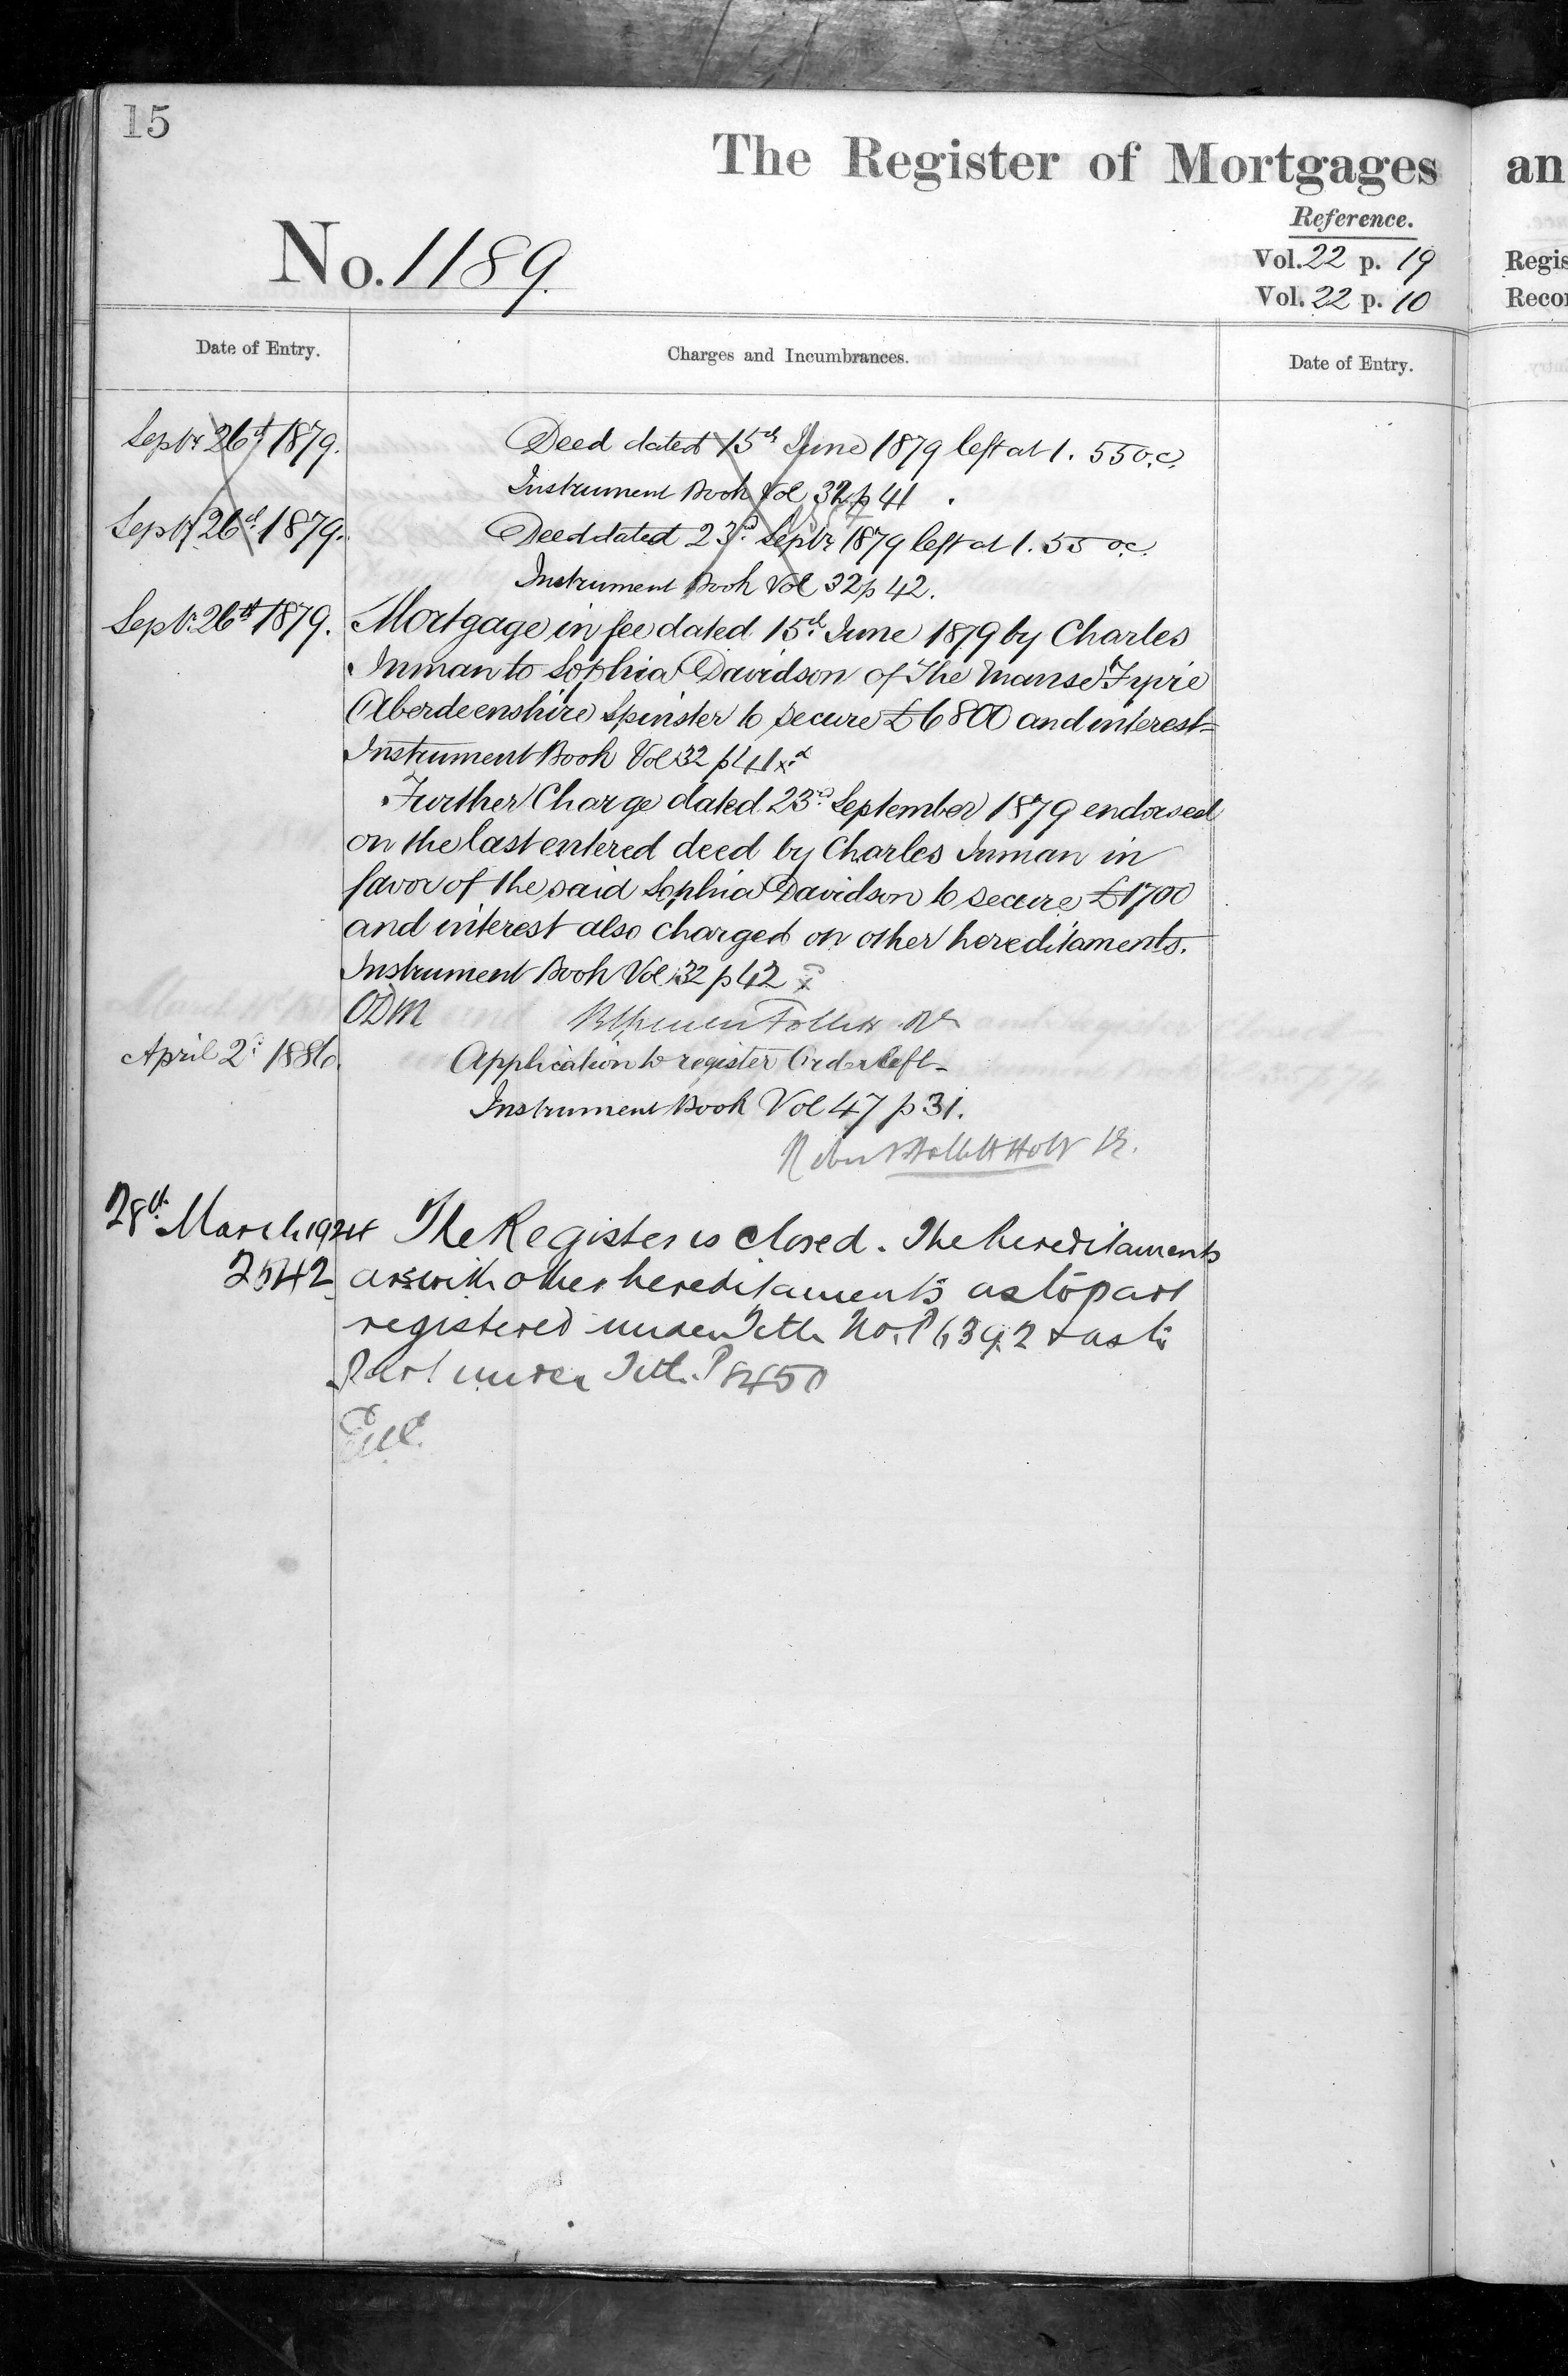 15
The Register of Mortgages
an
Reference.
No. 1189.
Vol. 22 p. 19
Regis
Vol. 22 p. 10
Recor
Date of Entry.
Charges and Incumbrances.
Date of Entry.
Septr 26th 1879.
Deed dated 15th June 1879 left at 1.55 o.c.
Instrument Book Vol 32 p 41
Septr 26th 1879.
Deed dated 23rd Septr 1879 left at 1.55 o.c.
Instrument Book Vol 32 p 42.
Septr 26th 1879.
Mortgage in fee dated 15th June 1879 by Charles
Inman to Sophia Davidson of The Manse Fyvie
Aberdeenshire Spinster to secure £6800 and interest
Instrument Book Vol 32 p 41
Further Charge dated 23rd September 1879 endorsed
on the last entered deed by Charles Inman in
favor of the said Sophia Davidson to secure £1700
and interest also charged on other hereditaments.
Instrument Book Vol 32 p 42
ODM
April 2d 1886.
Application to register Order left
Instrument Book Vol 47 p 31.
Robert Hallett Holt
28th March 1924
The Register is closed. The hereditaments
2542
are with other hereditaments as to part
registered under Title No. P 6392 & as to
Part under Title P 8450